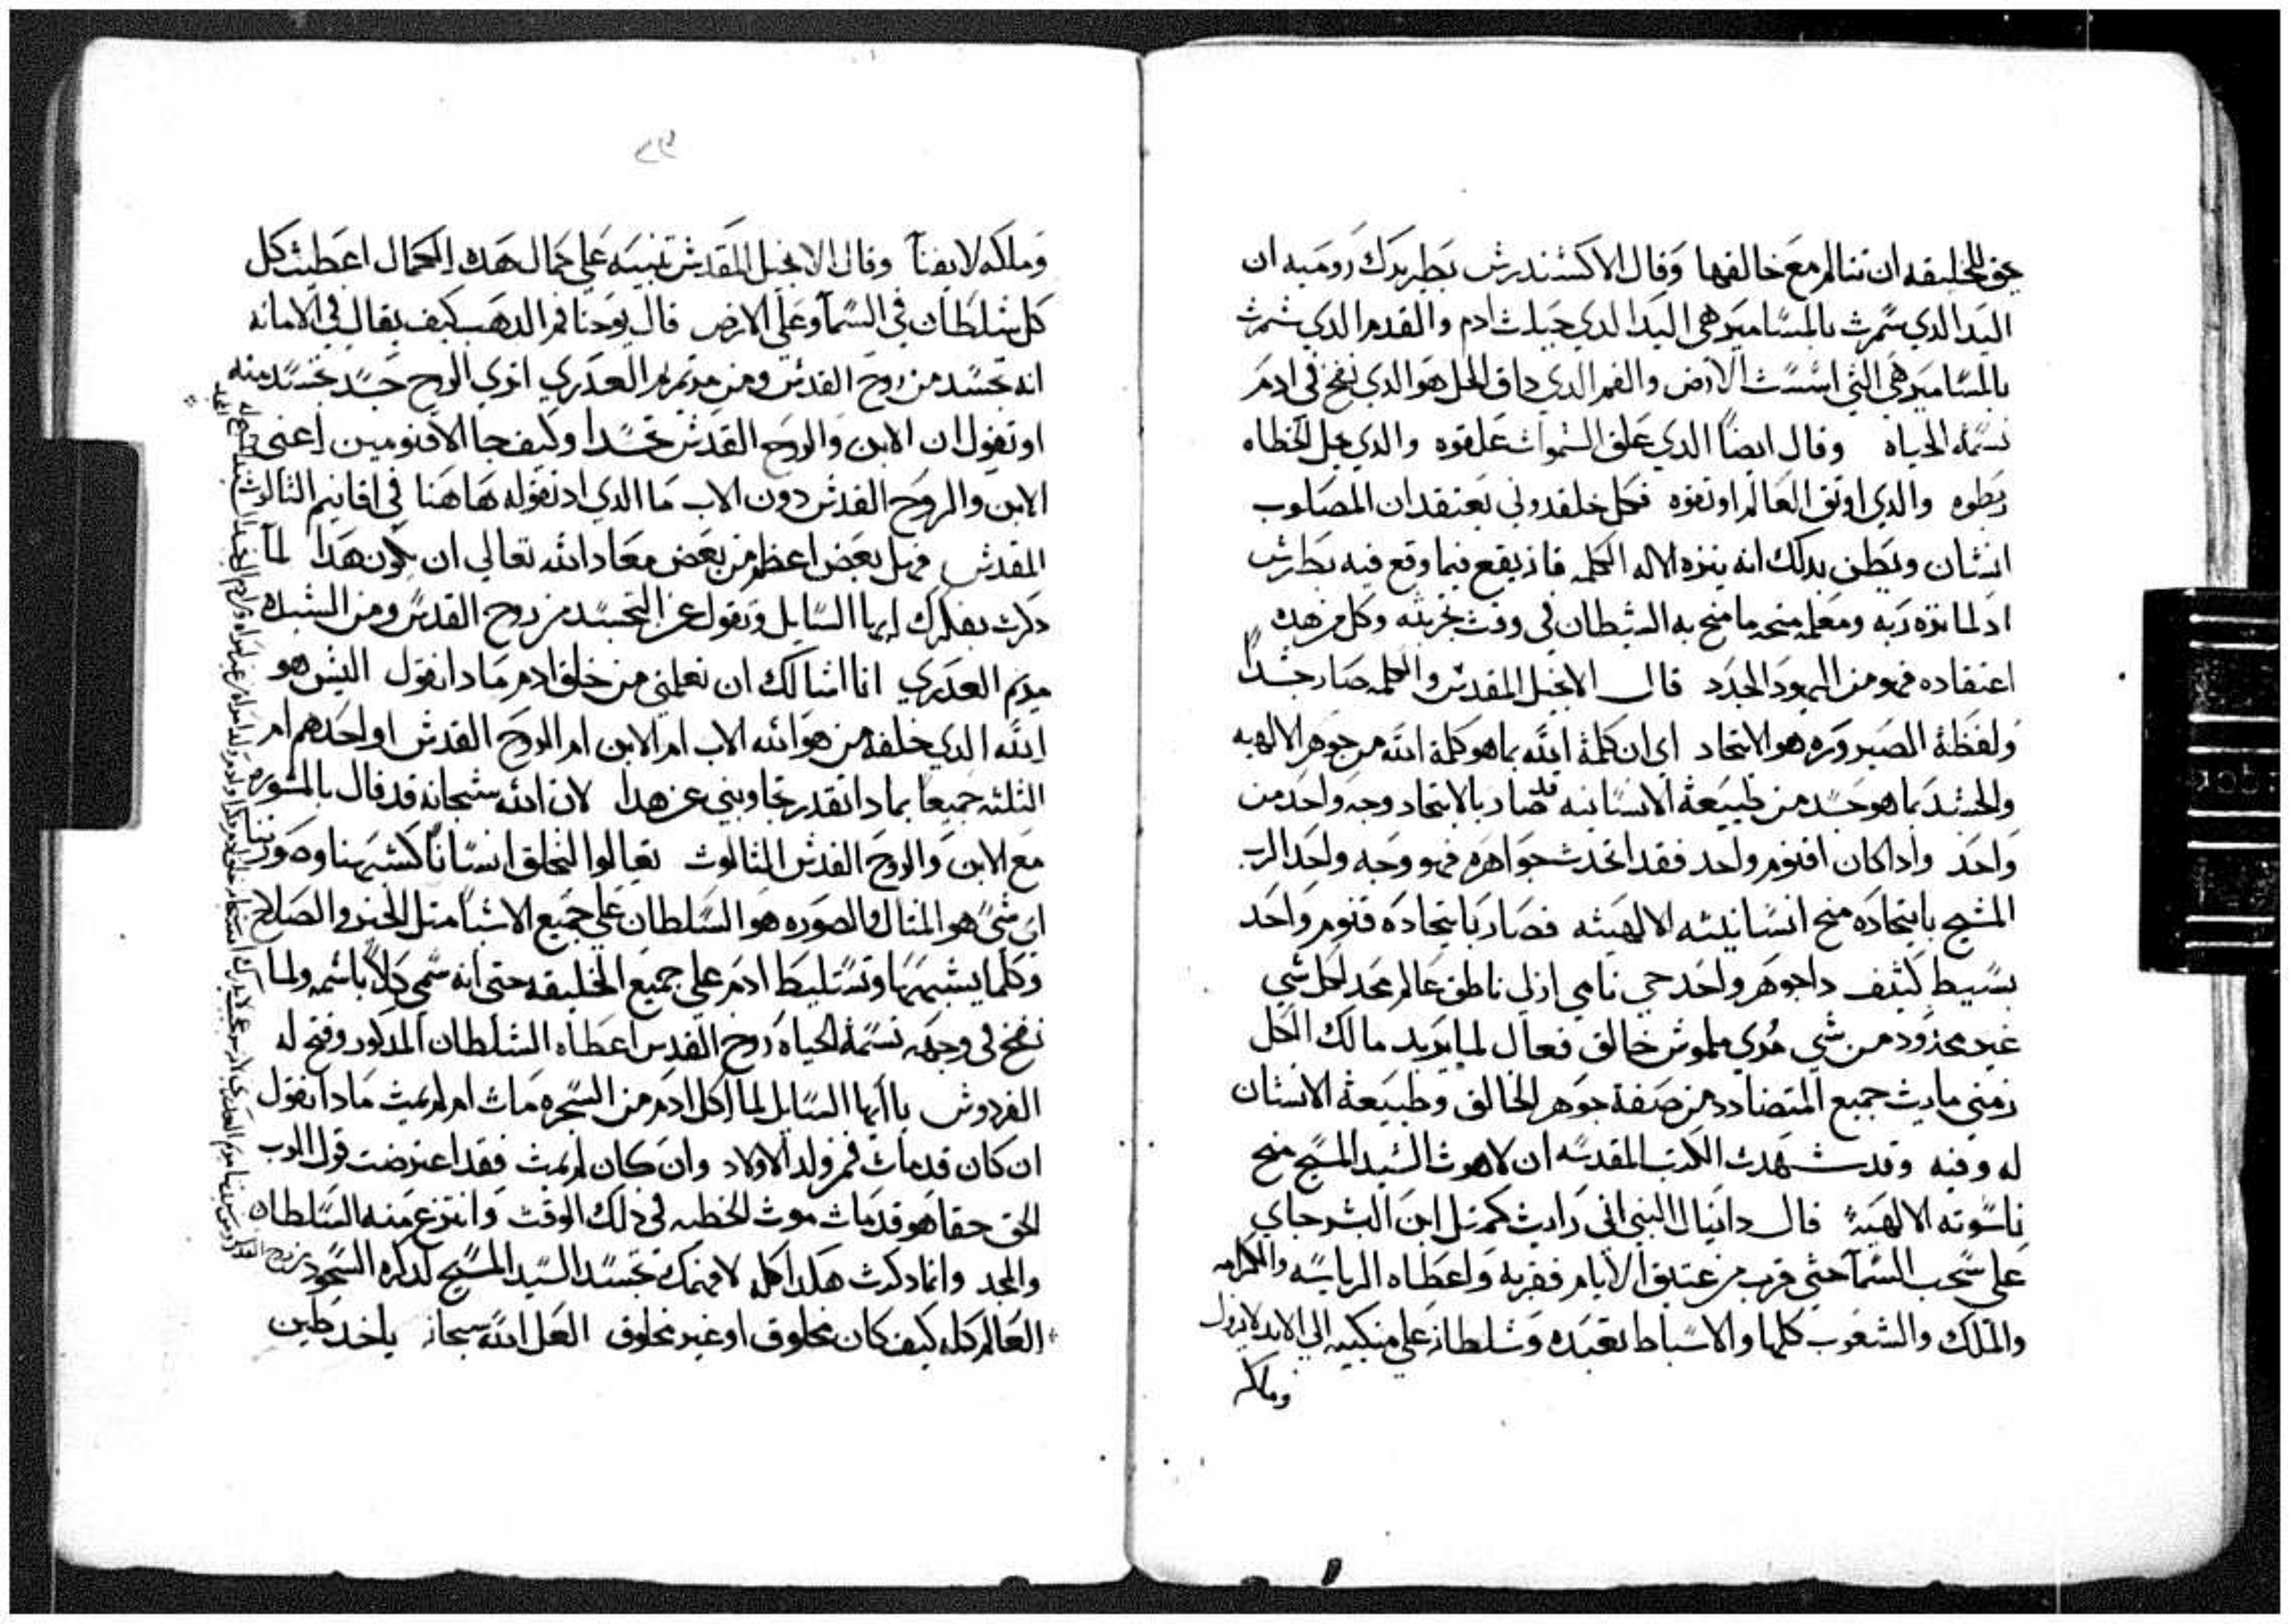 يحق للخليقه ان تتالم مع خالقها وقال الاكسندرس بطريرك روميه ان
اليد الدي سمرت بالمسامير هي اليد الدي جبلت ادم والقدم الدي سمرت
بالمسامير هي التي اسست الارض والفم الدي داق الخل هو الدي نفخ في ادم
نسمة الحياه وقال ايضا الدي علق السموات علقوه والدي حل الخطاه
ربطوه والدي اوثق العالم اوثقوه فكل خلقدوني يعتقد ان المصلوب
انسان ويظن بدلك انه ينزه الاله الكلمه فانه يقع فيما وقع فيه بطرس
اد لما نزه ربه ومعلمه منحه ما منح به الشيطان في وقت تجربته وكل من هده
اعتقاده فهو من اليهود الجدد قال الانجيل المقدس والكلمه صار جسداً
ولفظة الصيروره هو الاتحاد اي ان كلمة الله بما هو كلمة الله من جوهر الالهيه
والجسد بما هو جسد من طبيعة الانسانيه قد صار بالاتحاد وجه واحد من
واحد وادا كان اقنوم واحد فقد اتحدت جواهره فهو وجه واحد الرب
المسيح باتحاده منح انسانيته الالهيته فصار باتحاده قنوم واحد
بسيط كثيف دا جوهر واحد حي نامي ازلي ناطق عالم محد لكل شي
غير محدود من شي مري ملموس خالق فعال لما يريد مالك الكل
زمني مايت جميع المتضادد من صفة جوهر الخالق وطبيعة الانسان
له وفيه وقد شهدت الكتب المقدسه ان لاهوت السيد المسيح منح
ناسوته الالهية قال دانيال النبي اني رايت كمتل ابن البشر جاي
على سحب السما حتى قرب من عتيق الايام فقربه واعطاه الرياسه والكرامه
والملك والشعوب كلها والاسباط تعبده وسلطانه على منكبيه الى الابد لا يزول
وملكه
وملكه لا يفنا وقال الانجيل المقدس تنبيه على كمال هده الكمال اعطيت كل
كل سلطان في السما وعلى الارض قال يوحنا فم الدهب كيف يقال في الامانه
انه تجسد من روح القدس ومن مرتمريم العدري اتري الروح جسد تجسد منه
او تقول ان الابن والروح القدس تجسدا وكيف جا الاقنومين اعني
الابن والروح القدس دون الاب ما الدي اد تقوله هاهنا في اقانيم الثالوث
المقدس فهل بعض اعظم من بعض معاد الله تعالي ان يكون هدا لما
دكرت بفكرك ايها السايل وتقول عن التجسد من روح القدس ومن السيده
مريم العدري انا اسالك ان تعلمني من خلق ادم مادا تقول اليس هو
الله الدي خلقه من هو الله الاب ام الابن ام الروح القدس او احدهم ام
الثلثه جميعا بمادا تقدر تجاوبني عن هدا لان الله سبحانه قد قال بالمشوره
مع الابن والروح القدس الثالوث تعالوا لنخلق انسانا كشبهنا وصورتنا
اي شي هو المثال والصوره هو السلطان على جميع الاشيا متل الخير والصلاح
وكلما يشبههما وتسليط ادم علي جميع الخليقه حتي انه سمي كلاً باسمه ولما
نفخ في وجهه نسمة الحياه روح القدس اعطاه السلطان المدكور وفتح له
الفردوس يا ايها السايل لما اكل ادم من الشجره مات ام لم يمت مادا تقول
ان كان قد مات فمن ولد الاولاد وان كان لم يمت فقد اعترضت قول الرب
الحق حقا هو قد مات موت الخطيه في دلك الوقت وانتزع منه السلطان
والمجد وانما دكرت هدا كله لافهمك تجسد السيد المسيح لدكره السجود
العالم كله كيف كان مخلوق او غير مخلوق العل الله سبحانه ياخد طين